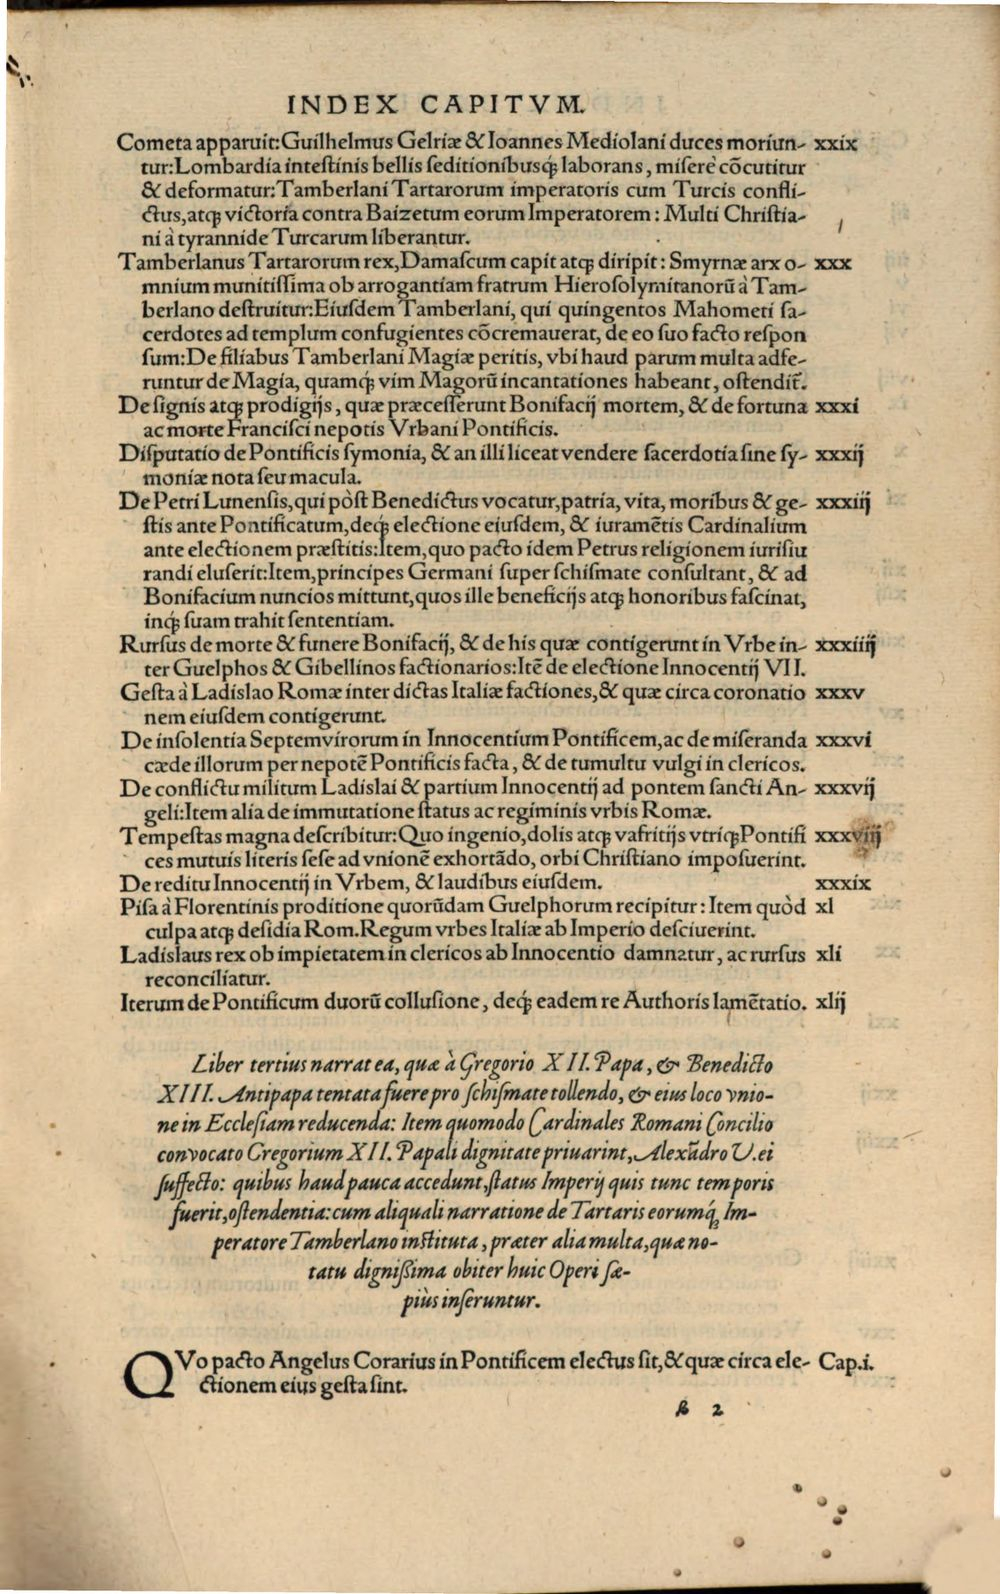 INDEX CAPITVM.
Cometa apparuit:Guilhelmus Gelriæ & Ioannes Mediolani duces moriun- xxix
tur:Lombardia intestinis bellis seditionibusq́; laborans, miserè cōcutitur
& deformatur:Tamberlani Tartarorum imperatoris cum Turcis confli-
ctus,atq; victoria contra Baizetum eorum Imperatorem: Multi Christia-
ni à tyrannide Turcarum liberantur.
Tamberlanus Tartarorum rex,Damascum capit atq; diripit: Smyrnæ arx o- xxx
mnium munitissima ob arrogantiam fratrum Hierosolymitanorū à Tam-
berlano destruitur:Eiusdem Tamberlani, qui quingentos Mahometi sa-
cerdotes ad templum confugientes cōcremauerat, de eo suo facto respon
sum:De filiabus Tamberlani Magiæ peritis, vbi haud parum multa adfe-
runtur de Magia, quamq́; vim Magorū incantationes habeant, ostendit̄.
De signis atq; prodigijs, quæ præcesserunt Bonifacij mortem, & de fortuna xxxi
ac morte Francisci nepotis Vrbani Pontificis.
Disputatio de Pontificis symonia, & an illi liceat vendere sacerdotia sine sy- xxxij
moniæ nota seu macula.
De Petri Lunensis,qui pòst Benedictus vocatur,patria, vita, moribus & ge- xxxiij
stis ante Pontificatum,deq́; electione eiusdem, & iuramētis Cardinalium
ante electionem præstitis:Item,quo pacto idem Petrus religionem iurisiu
randi eluserit:Item,principes Germani super schismate consultant, & ad
Bonifacium nuncios mittunt,quos ille beneficijs atq; honoribus fascinat,
inq́; suam trahit sententiam.
Rursus de morte & funere Bonifacij, & de his quæ contigerunt in Vrbe in- xxxiiij
ter Guelphos & Gibellinos factionarios:Itē de electione Innocentij VII.
Gesta à Ladislao Romæ inter dictas Italiæ factiones,& quæ circa coronatio xxxv
nem eiusdem contigerunt.
De insolentia Septemvirorum in Innocentium Pontificem,ac de miseranda xxxvi
cæde illorum per nepotē Pontificis facta, & de tumultu vulgi in clericos.
De conflictu militum Ladislai & partium Innocentij ad pontem sancti An- xxxvij
geli:Item alia de immutatione status ac regiminis vrbis Romæ.
Tempestas magna describitur:Quo ingenio,dolis atq; vafritijs vtriq;Pontifi xxxviij
ces mutuis literis sese ad vnionē exhortādo, orbi Christiano imposuerint.
De reditu Innocentij in Vrbem, & laudibus eiusdem. xxxix
Pisa à Florentinis proditione quorūdam Guelphorum recipitur: Item quòd xl
culpa atq; desidia Rom.Regum vrbes Italiæ ab Imperio desciuerint.
Ladislaus rex ob impietatem in clericos ab Innocentio damnatur, ac rursus xli
reconciliatur.
Iterum de Pontificum duorū collusione, deq́; eadem re Authoris lamētatio. xlij
Liber tertius narrat ea, quæ à Gregorio XII. Papa, & Benedicto
XIII. Antipapa tentata fuere pro schismate tollendo, & eius loco vnio-
ne in Ecclesiam reducenda: Item quomodo Cardinales Romani Concilio
convocato Gregorium XII. Papali dignitate priuarint, Alexādro V. ei
suffecto: quibus haud pauca accedunt,status Imperij quis tunc temporis
fuerit,ostendentia:cum aliquali narratione de Tartaris eorumq́; Im-
peratore Tamberlano instituta, præter alia multa,quæ no-
tatu dignissima obiter huic Operi sæ-
piùs inseruntur.
QVo pacto Angelus Corarius in Pontificem electus sit,& quæ circa ele- Cap.i.
ctionem eius gesta sint.
B 2